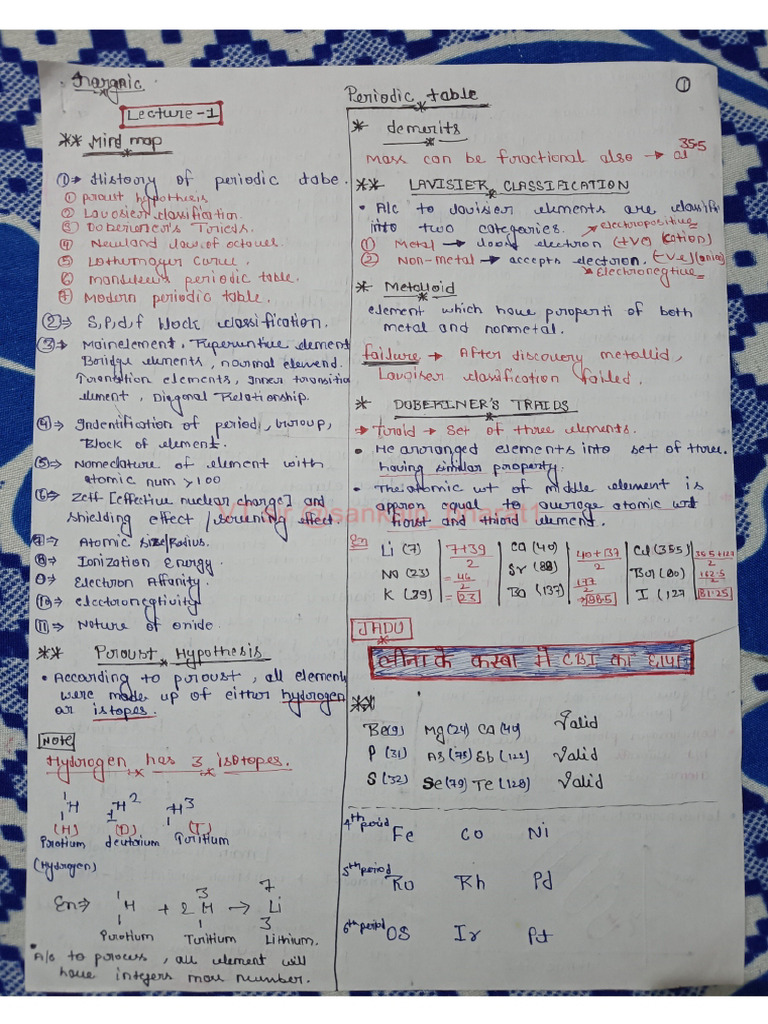 Inorganic
Periodic table
①
Lecture-1
** Mind map
①⇒ History of periodic tabe.
① proust hypothesis
② Lavosier classification.
③ Doberiener's Turids.
④ Newland law of octavel
⑤ Lothermayer curve.
⑥ mandeleev periodic table.
⑦ Modern periodic table.
②⇒ S,P,d,f block classification.
③⇒ Mainelement, element
Bridge elements, normal element.
Transition elements, Inner transitio
element, Diagonal Relationship.
④⇒ Indentification of period, Group,
Block of element.
⑤⇒ Nomeclature of element with
atomic num >100
⑥⇒ Zeff [effective nuclear change] and
shielding effect / screening effect.
⑦⇒ Atomic size/Radius.
⑧⇒ Ionization Energy.
⑨⇒ Electron Affinity.
⑩⇒ electronegtivity
⑪⇒ Nature of oxide.
** Proust Hypothesis
• According to proust, all element
were made up of either hydrogen
or istopes.
Note
Hydrogen has 3 isotopes.
1 H 1
1 H 2
H 3
(H) (D) (T)
Protium deutorium Tritium
(Hydrogen)
En⇒ 1 H 1 + 2 3 H 1 → 7 Li 3
Protium Tritium Lithium.
• A/c to process, all element will
have integers mass number.
* demerits
Mass can be fractional also → 35.5 cl
** LAVISIER CLASSIFICATION
• A/c to lavisier elements are classifi
into two categories.
electropositive
① Metal → loose electron (+ve) (cation)
② Non-metal → accepts electron. (-ve) (anion)
Electronegtive
* Metalloid
element which have properti of both
metal and nonmetal.
failure → After discovery metallid,
Lavoiser classification failed.
* DOBERINER'S TRAIDS
→ Traid → Set of three elements.
• He arranged elements into set of three.
having similar property.
• The atomic wt of middle element is
approx equal to average atomic wt
first and third element.
VJ sir @sankalp_bharat1
En Li (7) 7+39/2 Ca (40) 40+137/2 Cl (35.5)
Na (23) = 46/2 Sr (88) 177/2 Br (80) 162.5/2
K (39) = 23 Ba (137) → 88.5 I (127 81.25
JADU
लीना के कस्बा में CBI का छापा
**
Be(9) Mg(24) Ca(40) Valid
P (31) As (75) Sb (121) Valid
S (32) Se(79) Te (128) Valid
4th period Fe Co Ni
5th period Ru Rh Pd
6th period OS Ir Pt